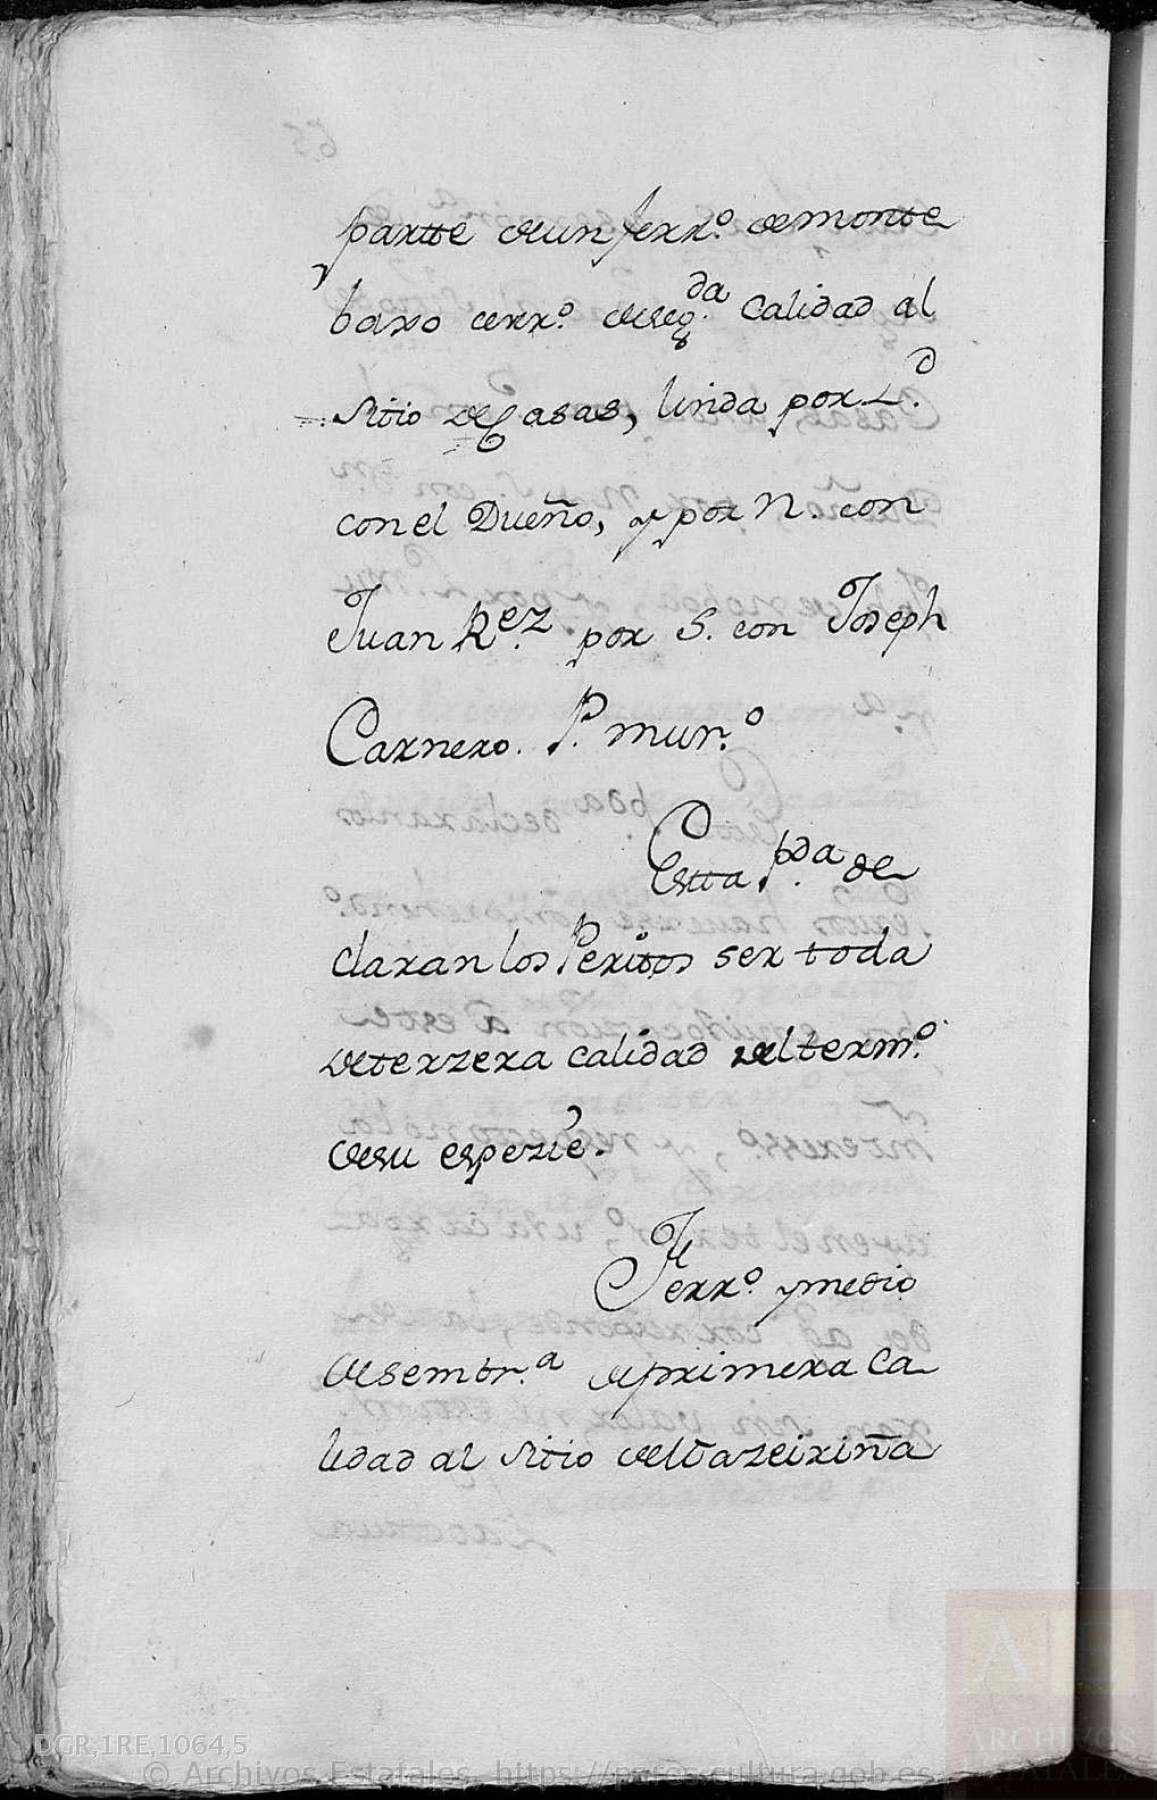 partte de un ferr.º de monte
baxo cerr.º de seg.da Calidad al
Sitio de Casas, linda por L.e
con el Dueño, y por N. con
Juan R.ez por S. con Joseph
Carnero. P. mur.º
Estta p.da de
claran los Peritos ser toda
de terzera calidad del term.º
de su espezie.
Ferr.º y medio
de sembr.a de primera Ca
lidad al Sitio de
DGR,1RE,1064,5
© Archivos Estatales, https://pares.cultura.gob.es
AE
ARCHIVOS
ESTATALES